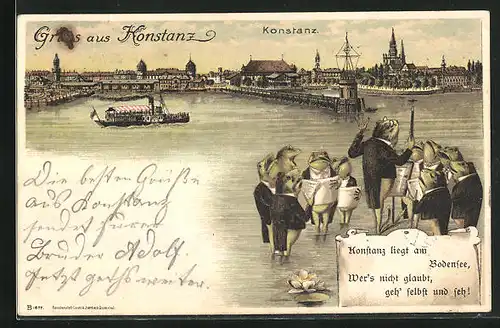 Gruss aus Konstanz
Konstanz.
Die besten Grüße
aus Konstanz
sendet Eurer
Bruder Adolf.
Jetzt gehts weiter.
Konstanz liegt am
Bodensee,
Wer's nicht glaubt,
geh' selbst und seh!